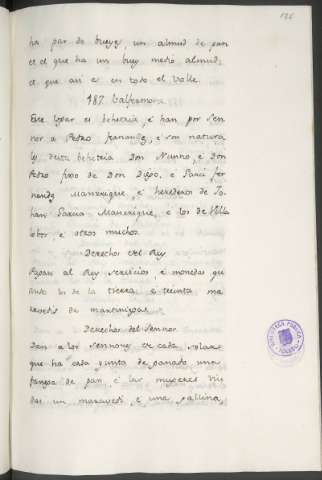 126
ha par de bueys, un almud de pan
et el que ha un buey medio almud,
et que asi es en todo el Valle.
187. Valfermoso
Este logar es behetria, e han por Sen
nor a Petro Fernandez, e son natura
les desta behetria Don Nunno, e Don
Petro fixo de Don Diego, e Garci Fer
nendez Manrrique, e herederos de Jo
han Garcia Manrrique, e los de Villa
lobos, e otros muchos.
Derechos del Rey
Pagan al Rey servicios, e monedas qu
ando los de la tierra, e treinta ma
ravedis de martiniegas.
Derechos del Sennor
Dan a los Sennores de cada solar
que ha cada yunta de ganado una
fanega de pan, e las mugeres viu
das un maravedi, e una gallina,
BIBLIOTECA PUBLICA
TOLEDO